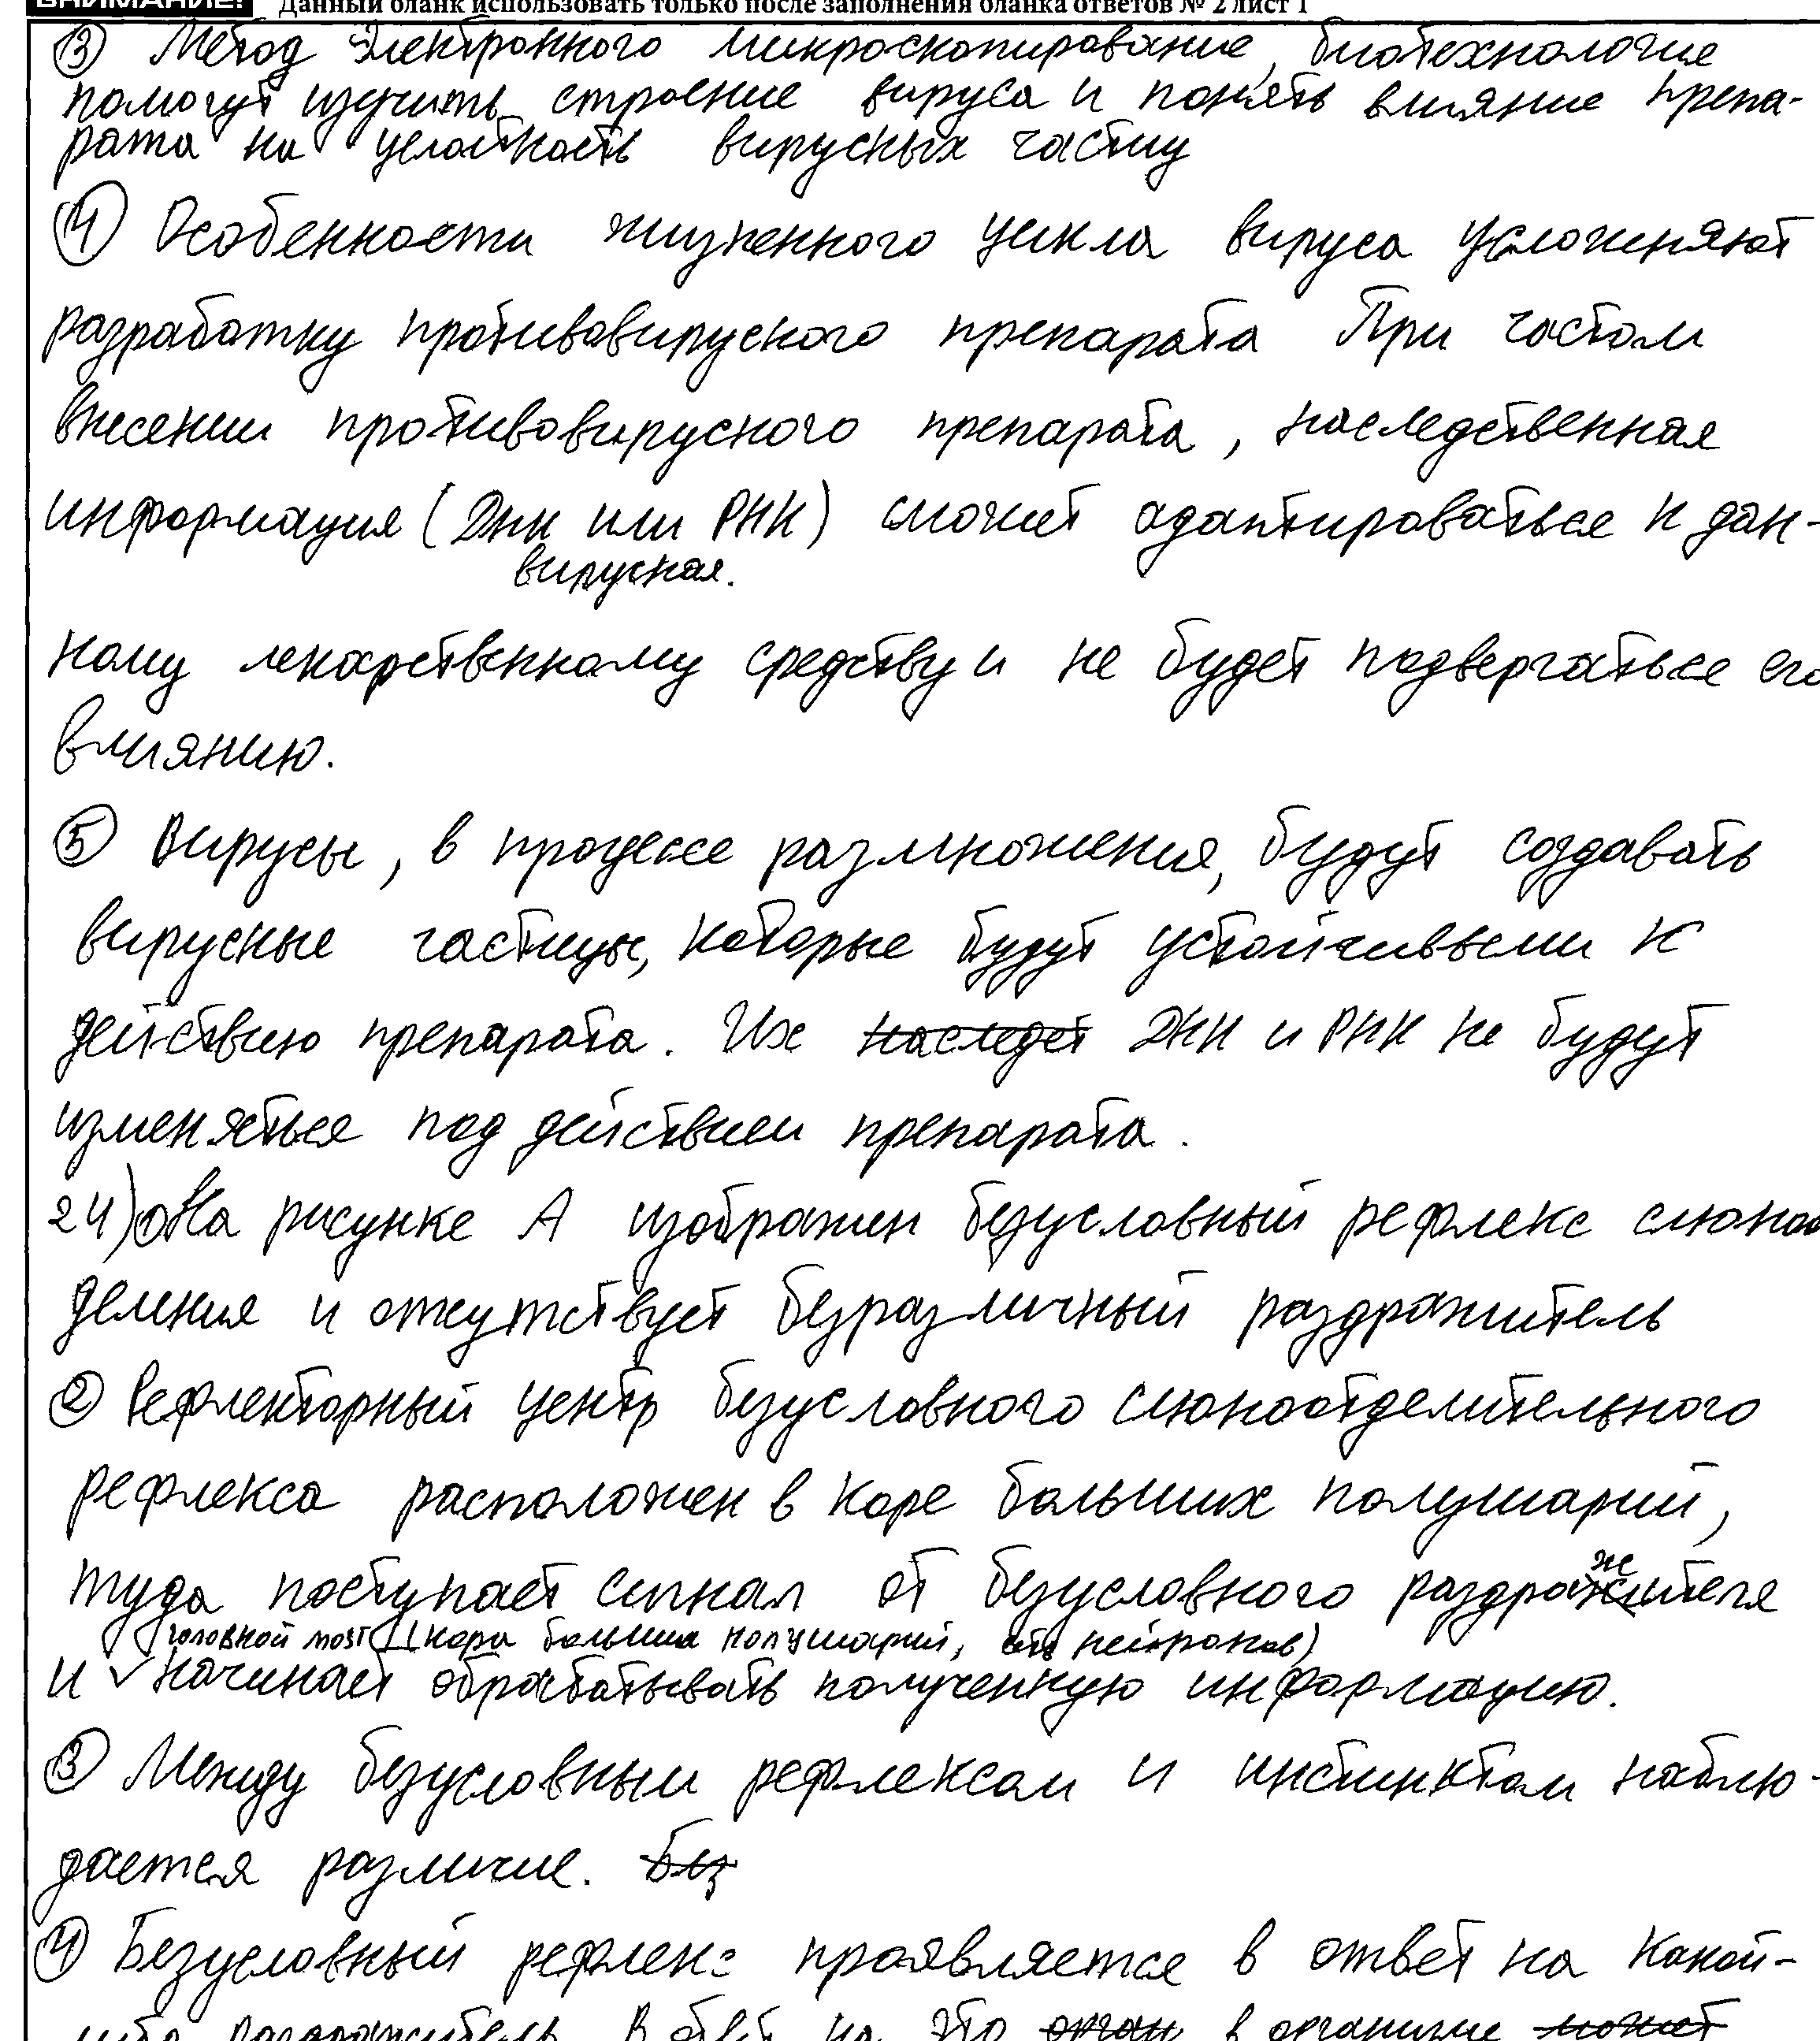 ВНИМАНИЕ! Данный бланк использовать только после заполнения бланка ответов № 2 лист 1
③ Метод электронного микроскопирование, биотехнологие
помогут изучить строение вируса и понять влияние препа-
рата на целостность вирусных частиц
④ Особенности жизненного цикла вируса усложняют
разработку противовирусного препарата При частом
внесении противовирусного препарата, наследственная
информация (ДНК или РНК) сможет адаптироваться к дан-
вирусная.
ному лекарственному средству и не будет подвергаться его
влиянию.
⑤ Вирусы, в процессе размножения, будут создавать
вирусные частицы, которые будут устойчивыми к
действию препарата. Их наследст ДНК и РНК не будут
изменяться под действием препарата.
24) ① На рисунке А изображен безусловный рефлекс слюноо
деления и отсутствует безразличный раздражитель
② Рефлекторный центр безусловного слюноотделительного
рефлекса расположен в коре больших полушарий,
туда поступает сигнал от безусловного раздражителя
головной мозг (кора больших полушарий, нейронов)
и начинает обрабатывать полученную информацию.
③ Между безусловным рефлексом и инстинктом наблю-
дается различие. Без
④ Безусловный рефлекс проявляется в ответ на какой-
либо раздражитель. В ответ на это орган в организме может